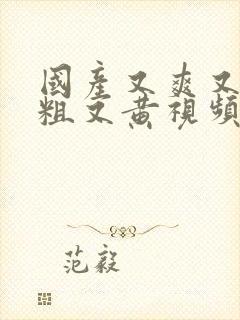 國產又爽又
粗文黃視頻
范毅